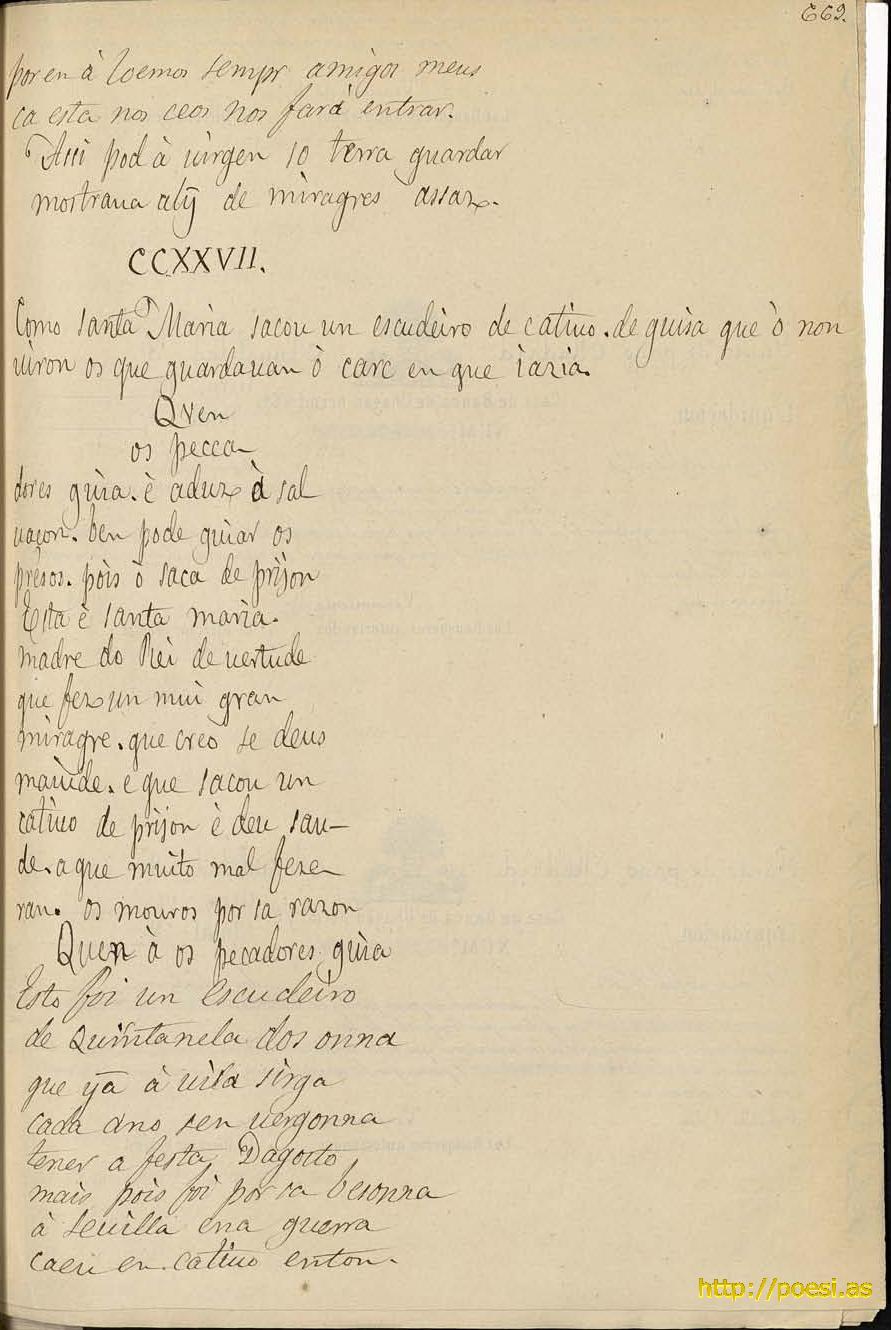 669.
por en à loemos sempr amigos meus
ca esta nos ceos nos fará entrar.
Assi pod à uirgen so terra guardar
mostraua alý de miragres assaz.
CCXXVII.
Como santa Maria sacou un escudeiro de catiuo. de guisa que ò non
uiron os que guardauan ò carc en que iazia.
Qven
os pecca
dores guia. è aduz à sal
uaçon. ben pode guiar os
presos. pois ò saca de prijon
Esta è santa maria.
madre do Rei de uertude
que fez un mui gran
miragre. que creo se deus
maiude. e que sacou un
catiuo de prijon è deu sau-
de. a que muito mal feze
ran. os mouros por sa razon
Quen à os pecadores guia
Esto foi un escudeiro
de Quintanela dos onna
que ya à uila sirga
cada ano sen uergonna
tener a festa Dagosto
mais pois foi por sa besonna
à Seuilla ena guerra
caeu en catiuo enton.
http://poesi.as